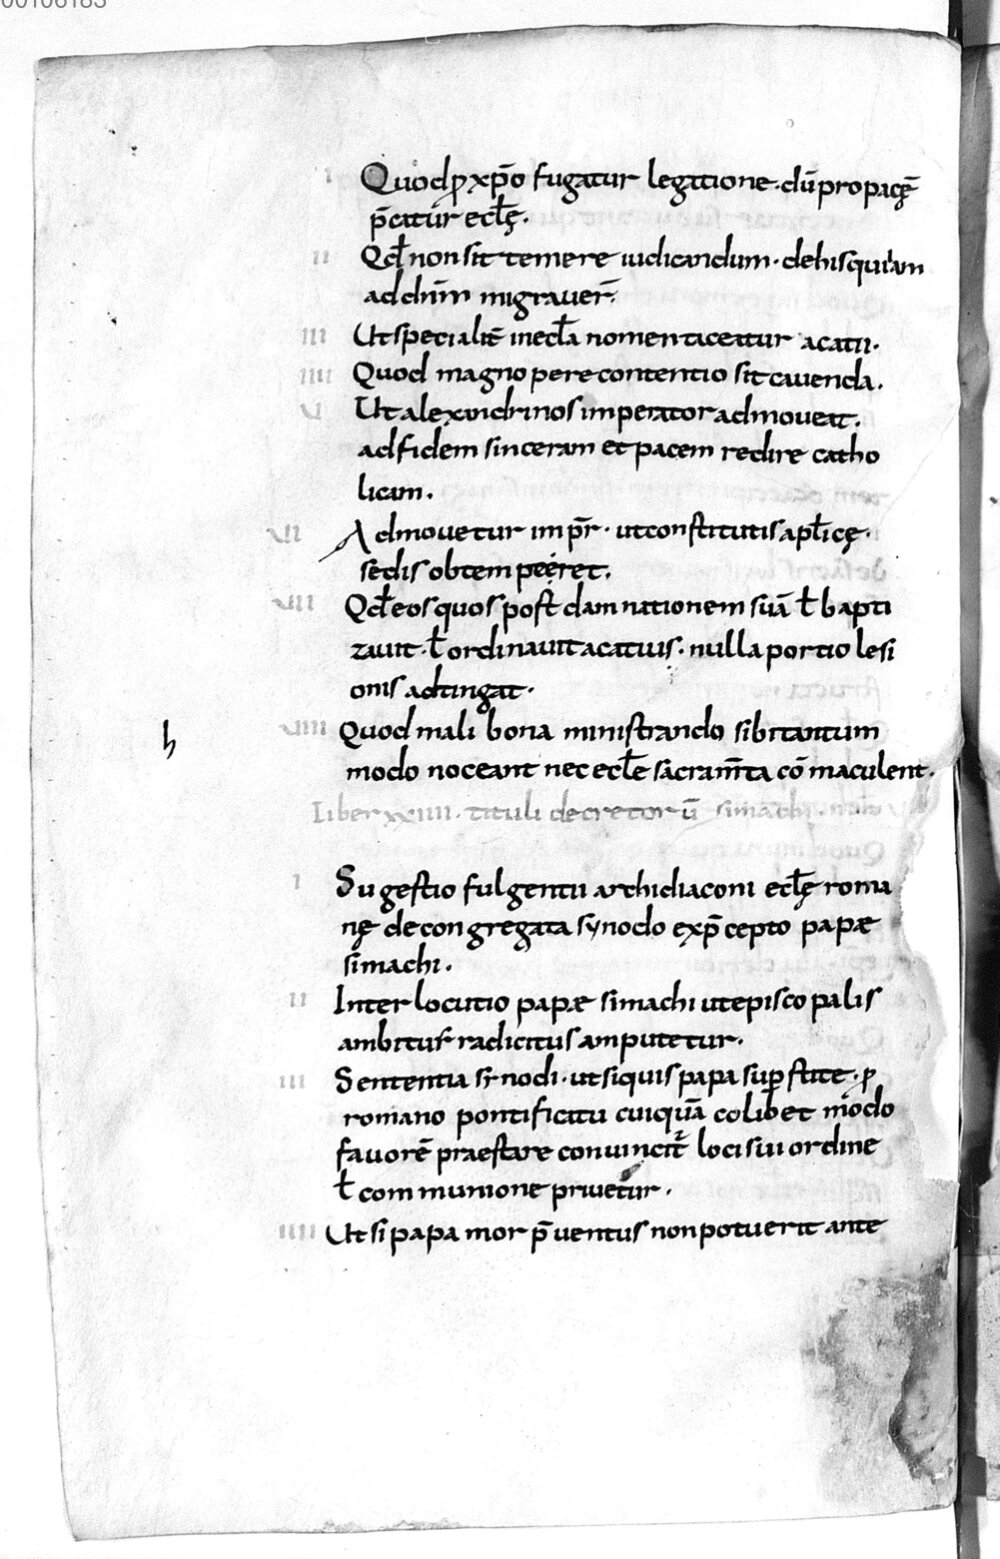 00106183
I Quod ꝓ xp̄o fugatur legatione · dū pro pacę̄
p̄catur eclę̄ ·
II Qd̄ non sit temere iudicandum · de his qui iam
ad dn̄m migrauer̄ ·
III Ut specialit̄ in ecl̄a nomen taceatur acatii ·
IIII Quod magno pere contentio sit cauenda .
V Ut alexandrinos imperator admoueat .
ad fidem sinceram et pacem redire catho
licam .
VII Admouetur imp̄r · ut constitutis apl̄icę ·
sedis obtemperet .
VIII Qd̄ eos quos post damnationem suā ł bapti
zauit · ł ordinauit acatius · nulla portio lesi
onis adtingat ·
VIIII Quod mali bona ministrando sibi tantum
h
modo noceant nec ecl̄e sacram̄ta cō maculent .
Liber XXIIII · tituli decretorū simachi
I Sugestio fulgentii archidiaconi eclę̄ roma
nę de congregata synodo ex p̄cepto papæ
simachi .
II Inter locutio papæ simachi ut episcopalis
ambitus radicitus amputetur .
III Sententia synodi · ut si quis papa suꝑstite · ꝓ
romano pontificatu cuiquā colibet modo
fauorē praestare conuincit̄ loci sui ordine
ł communione priuetur .
IIII Ut si papa mor p̄uentus non potuerit ante